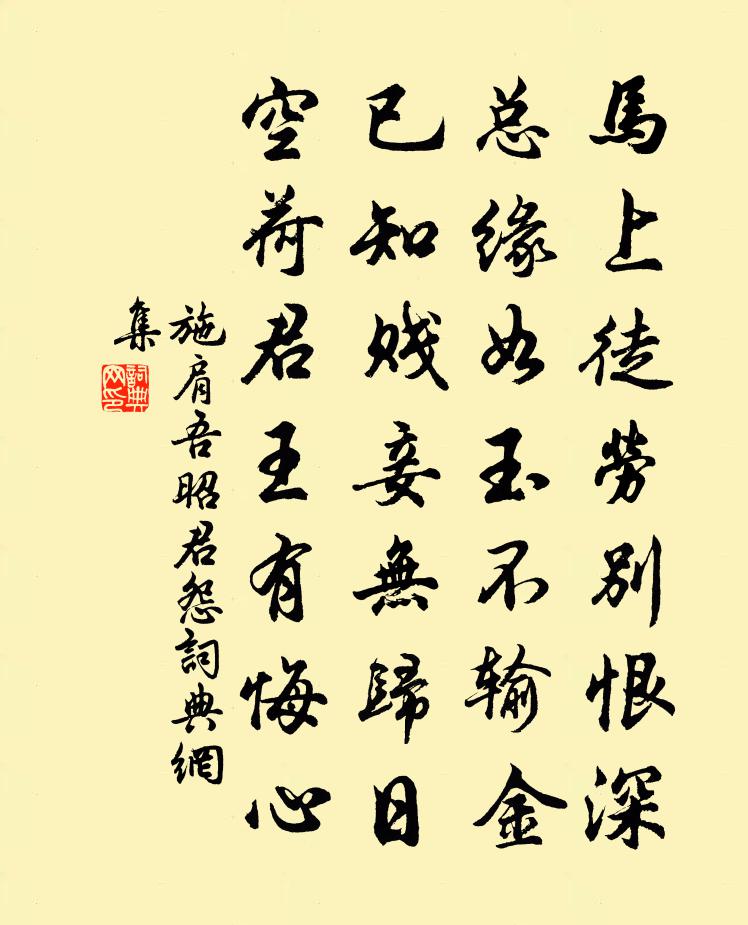 馬上徒勞別恨深
总缘如玉不输金
已知贱妾無歸日
空荷君王有悔心
施肩吾昭君怨詞典網
集
詞典
网印